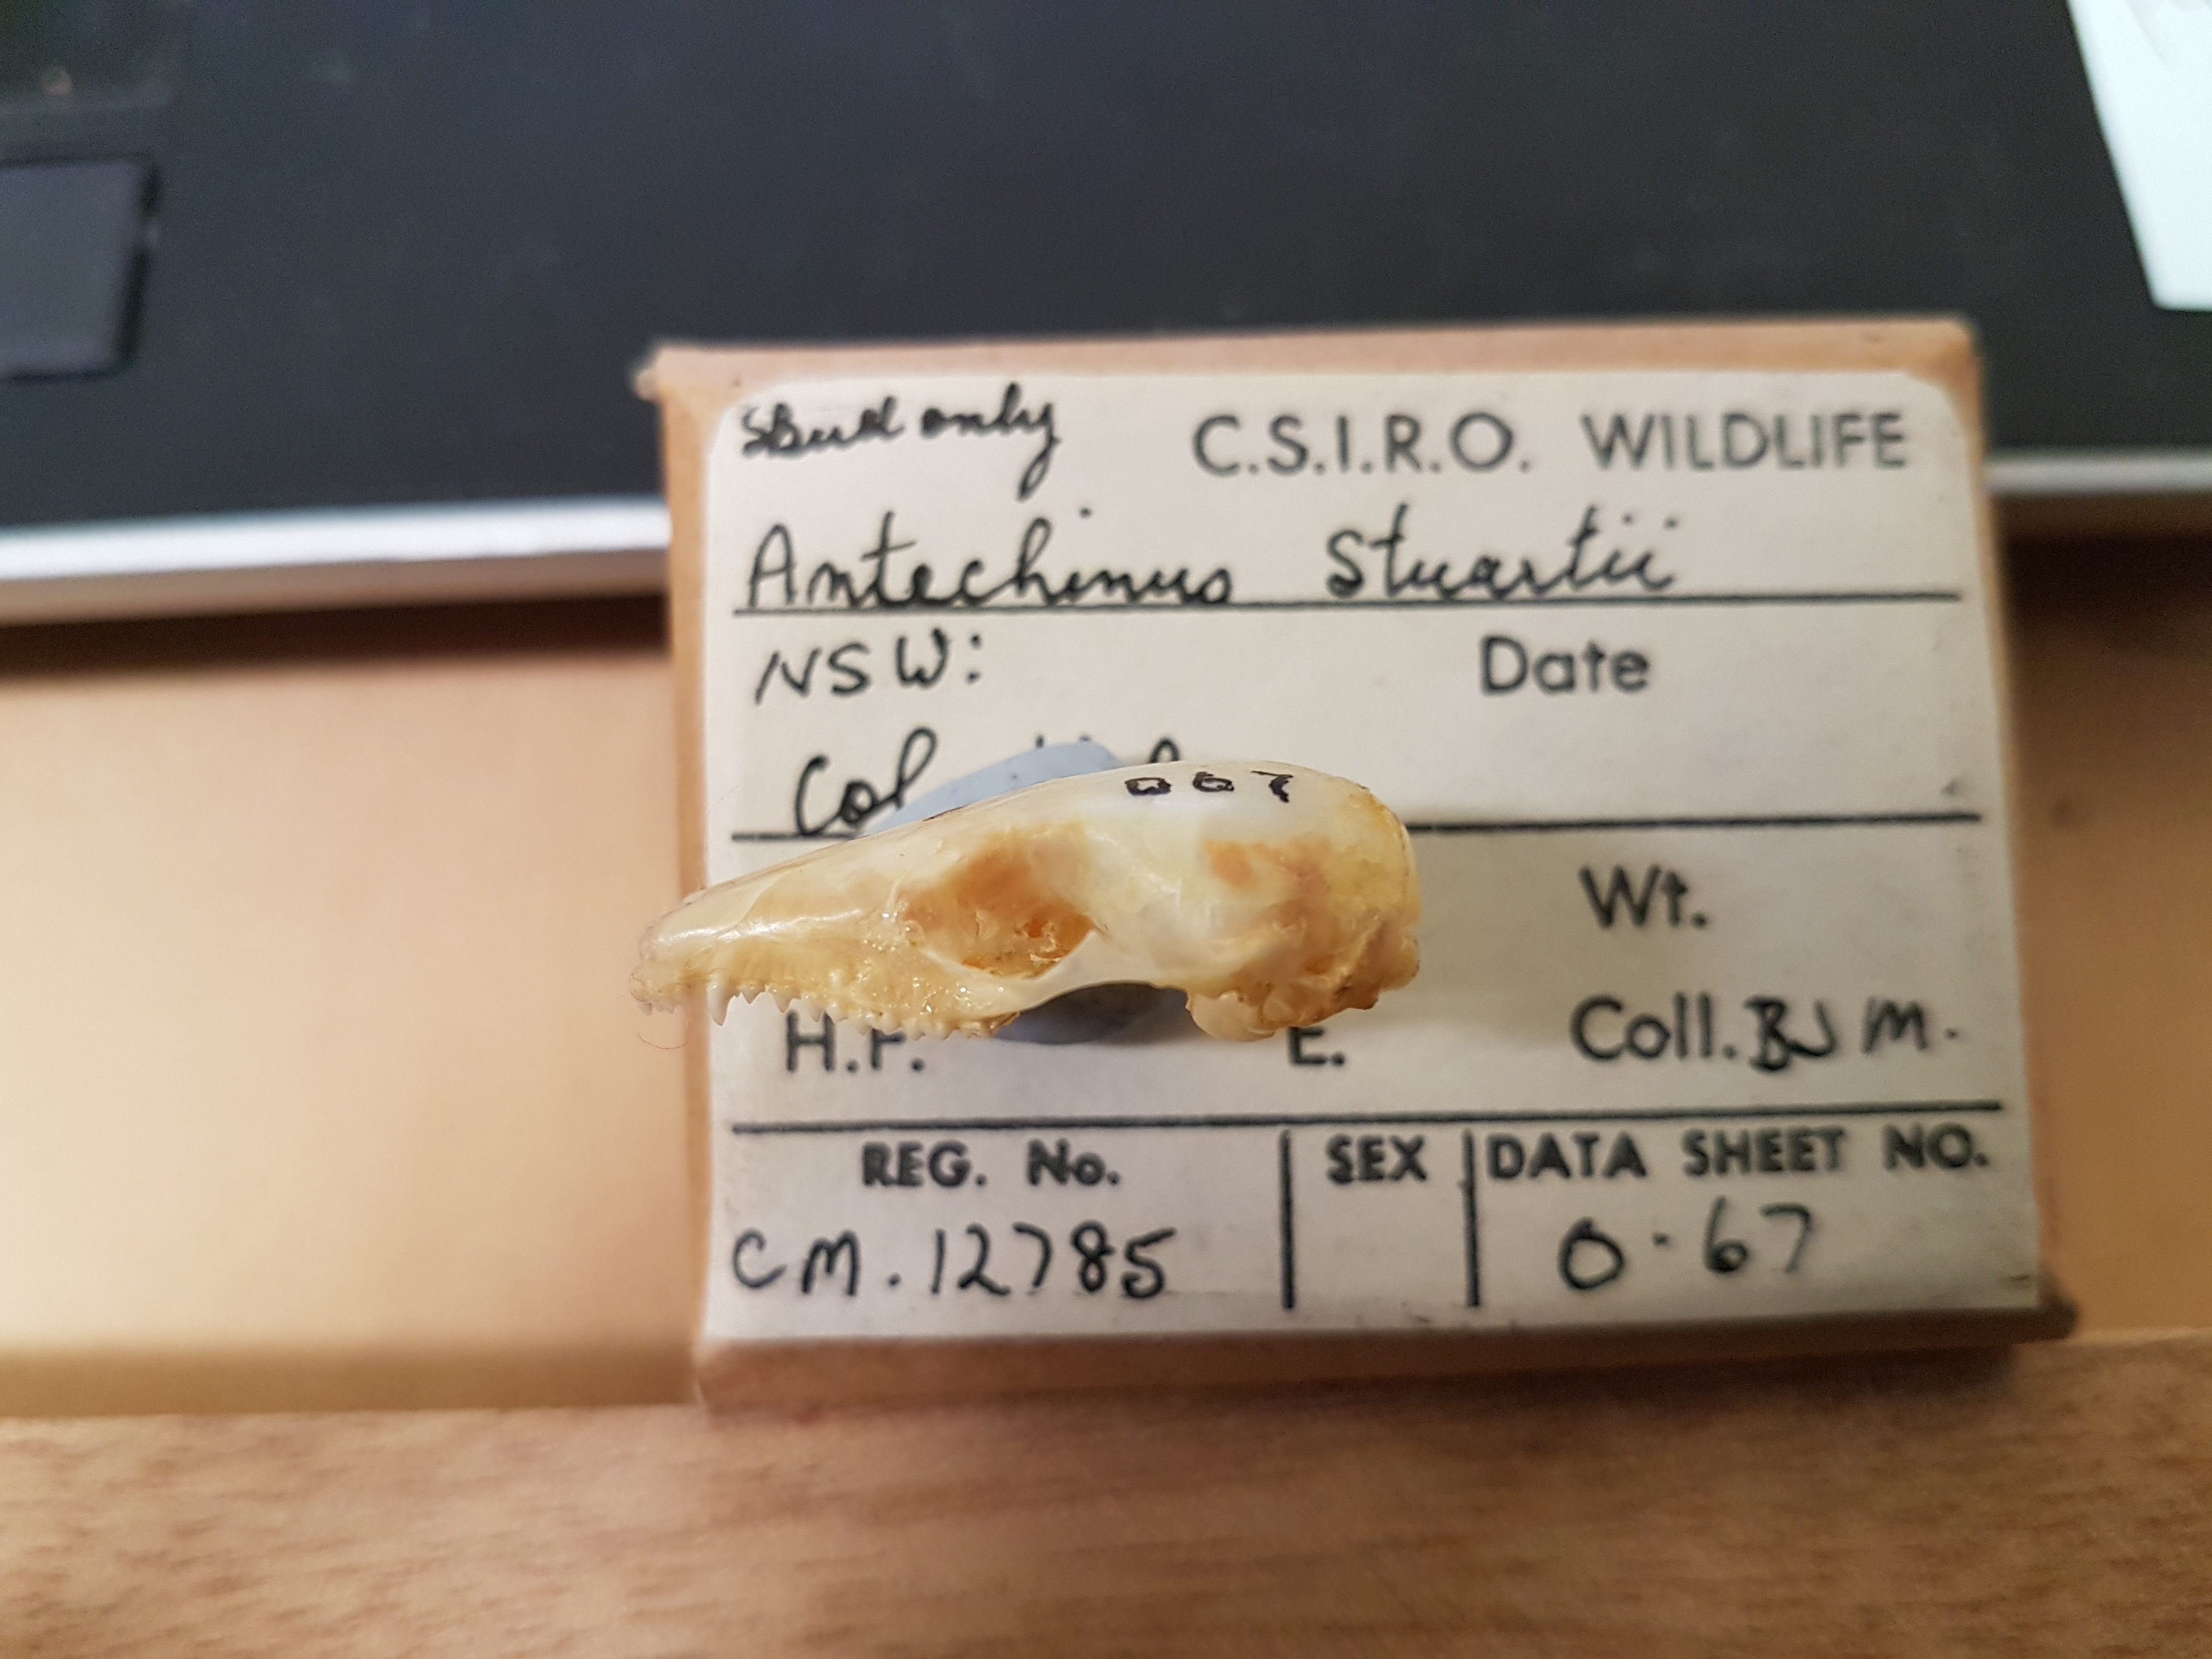 Skull only C.S.I.R.O. WILDLIFE
Antechinus Stuartii
NSW: Date
067
Wt.
H.F. E. Coll. BJM.
REG. No. SEX DATA SHEET NO.
CM.12785 0.67